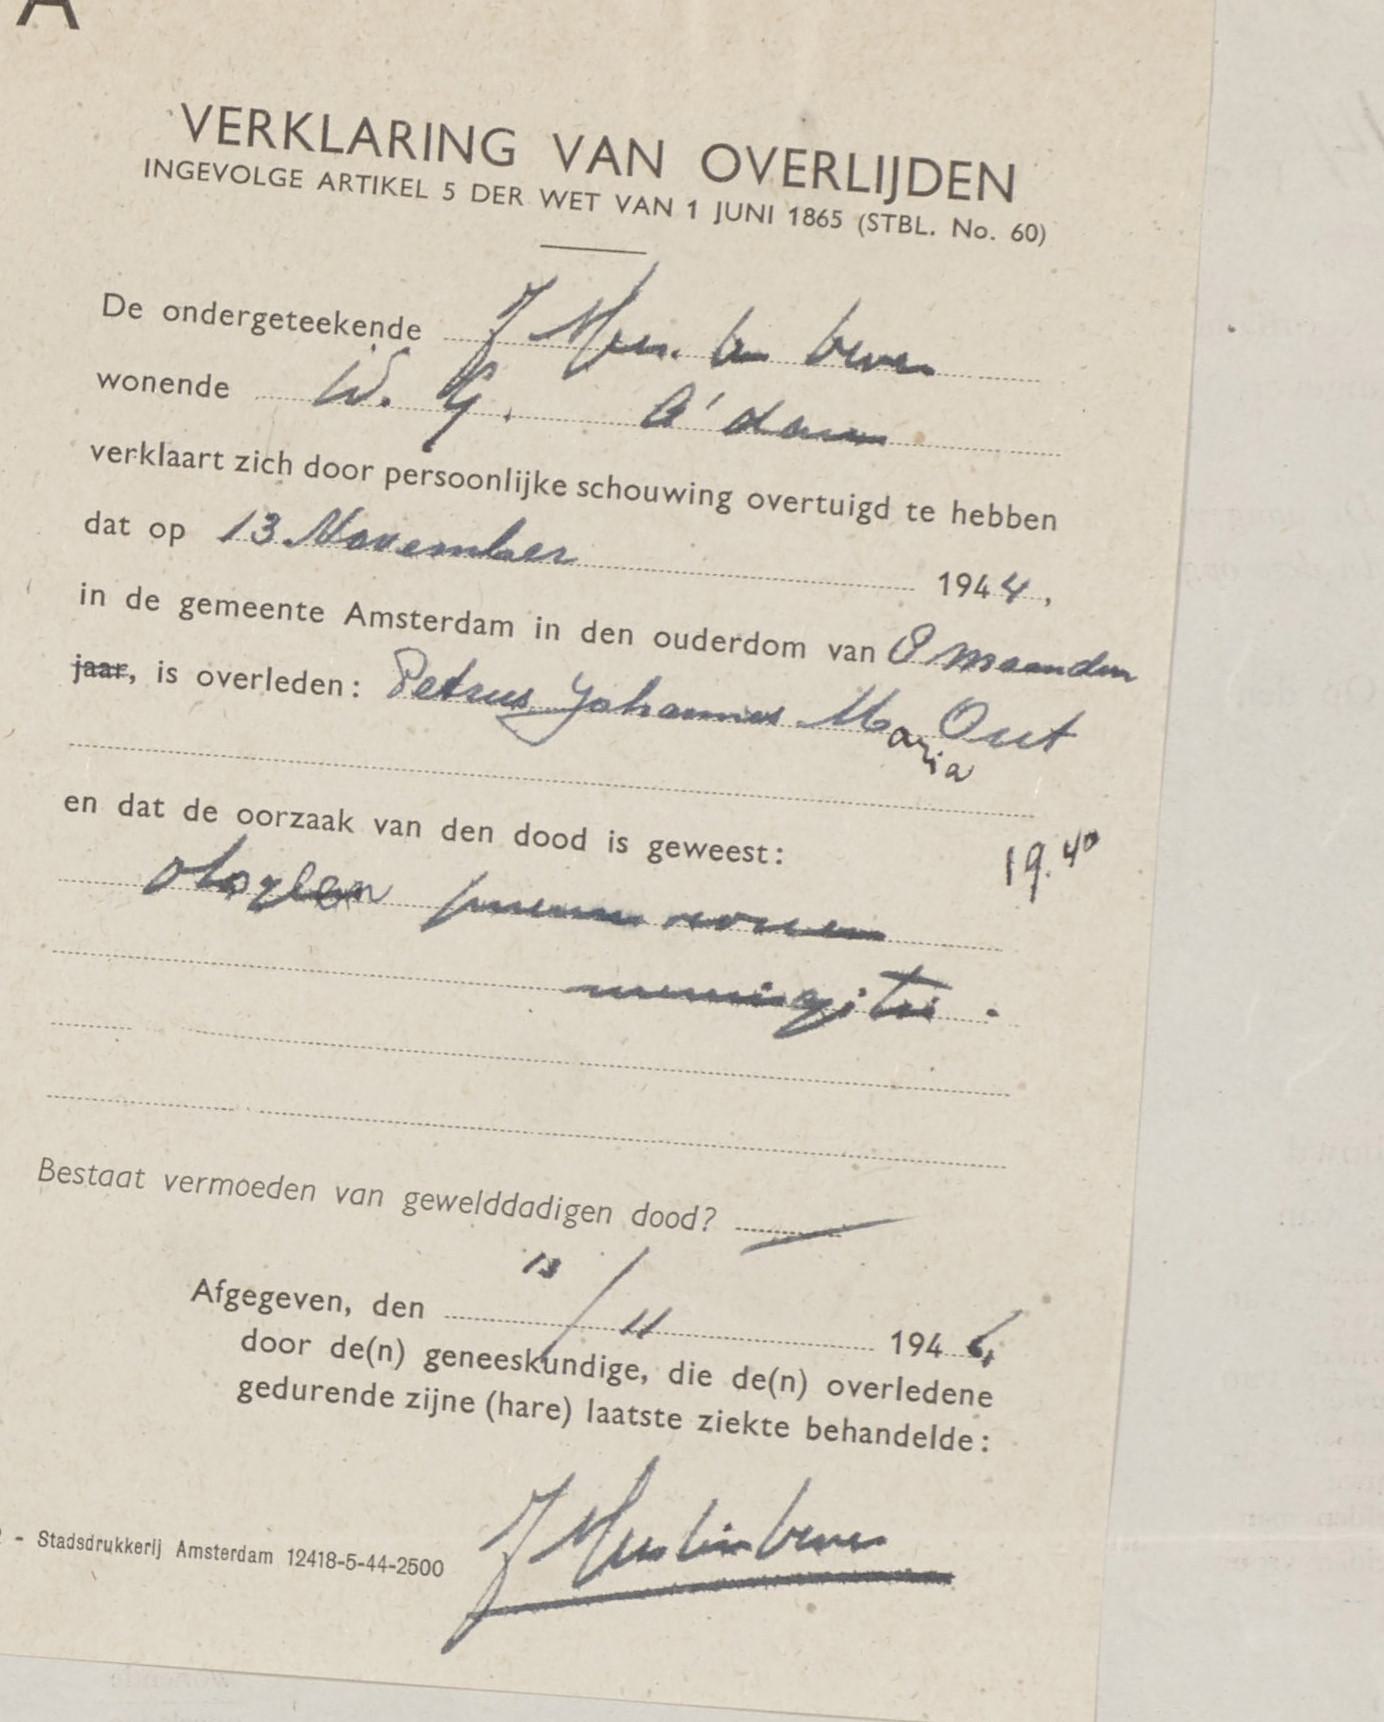 A
VERKLARING VAN OVERLIJDEN
INGEVOLGE ARTIKEL 5 DER WET VAN 1 JUNI 1865 (STBL. No. 60)
De ondergeteekende J
wonende W. G. A'dam
verklaart zich door persoonlijke schouwing overtuigd te hebben
dat op 13 November 1944,
in de gemeente Amsterdam in den ouderdom van 8 maanden
jaar, is overleden: Petrus Johannes Maria Out
en dat de oorzaak van den dood is geweest:
19.40
otogeen
meningitis.
Bestaat vermoeden van gewelddadigen dood? —
Afgegeven, den 13/11 1944
door de(n) geneeskundige, die de(n) overledene
gedurende zijne (hare) laatste ziekte behandelde:
J
- Stadsdrukkerij Amsterdam 12418-5-44-2500